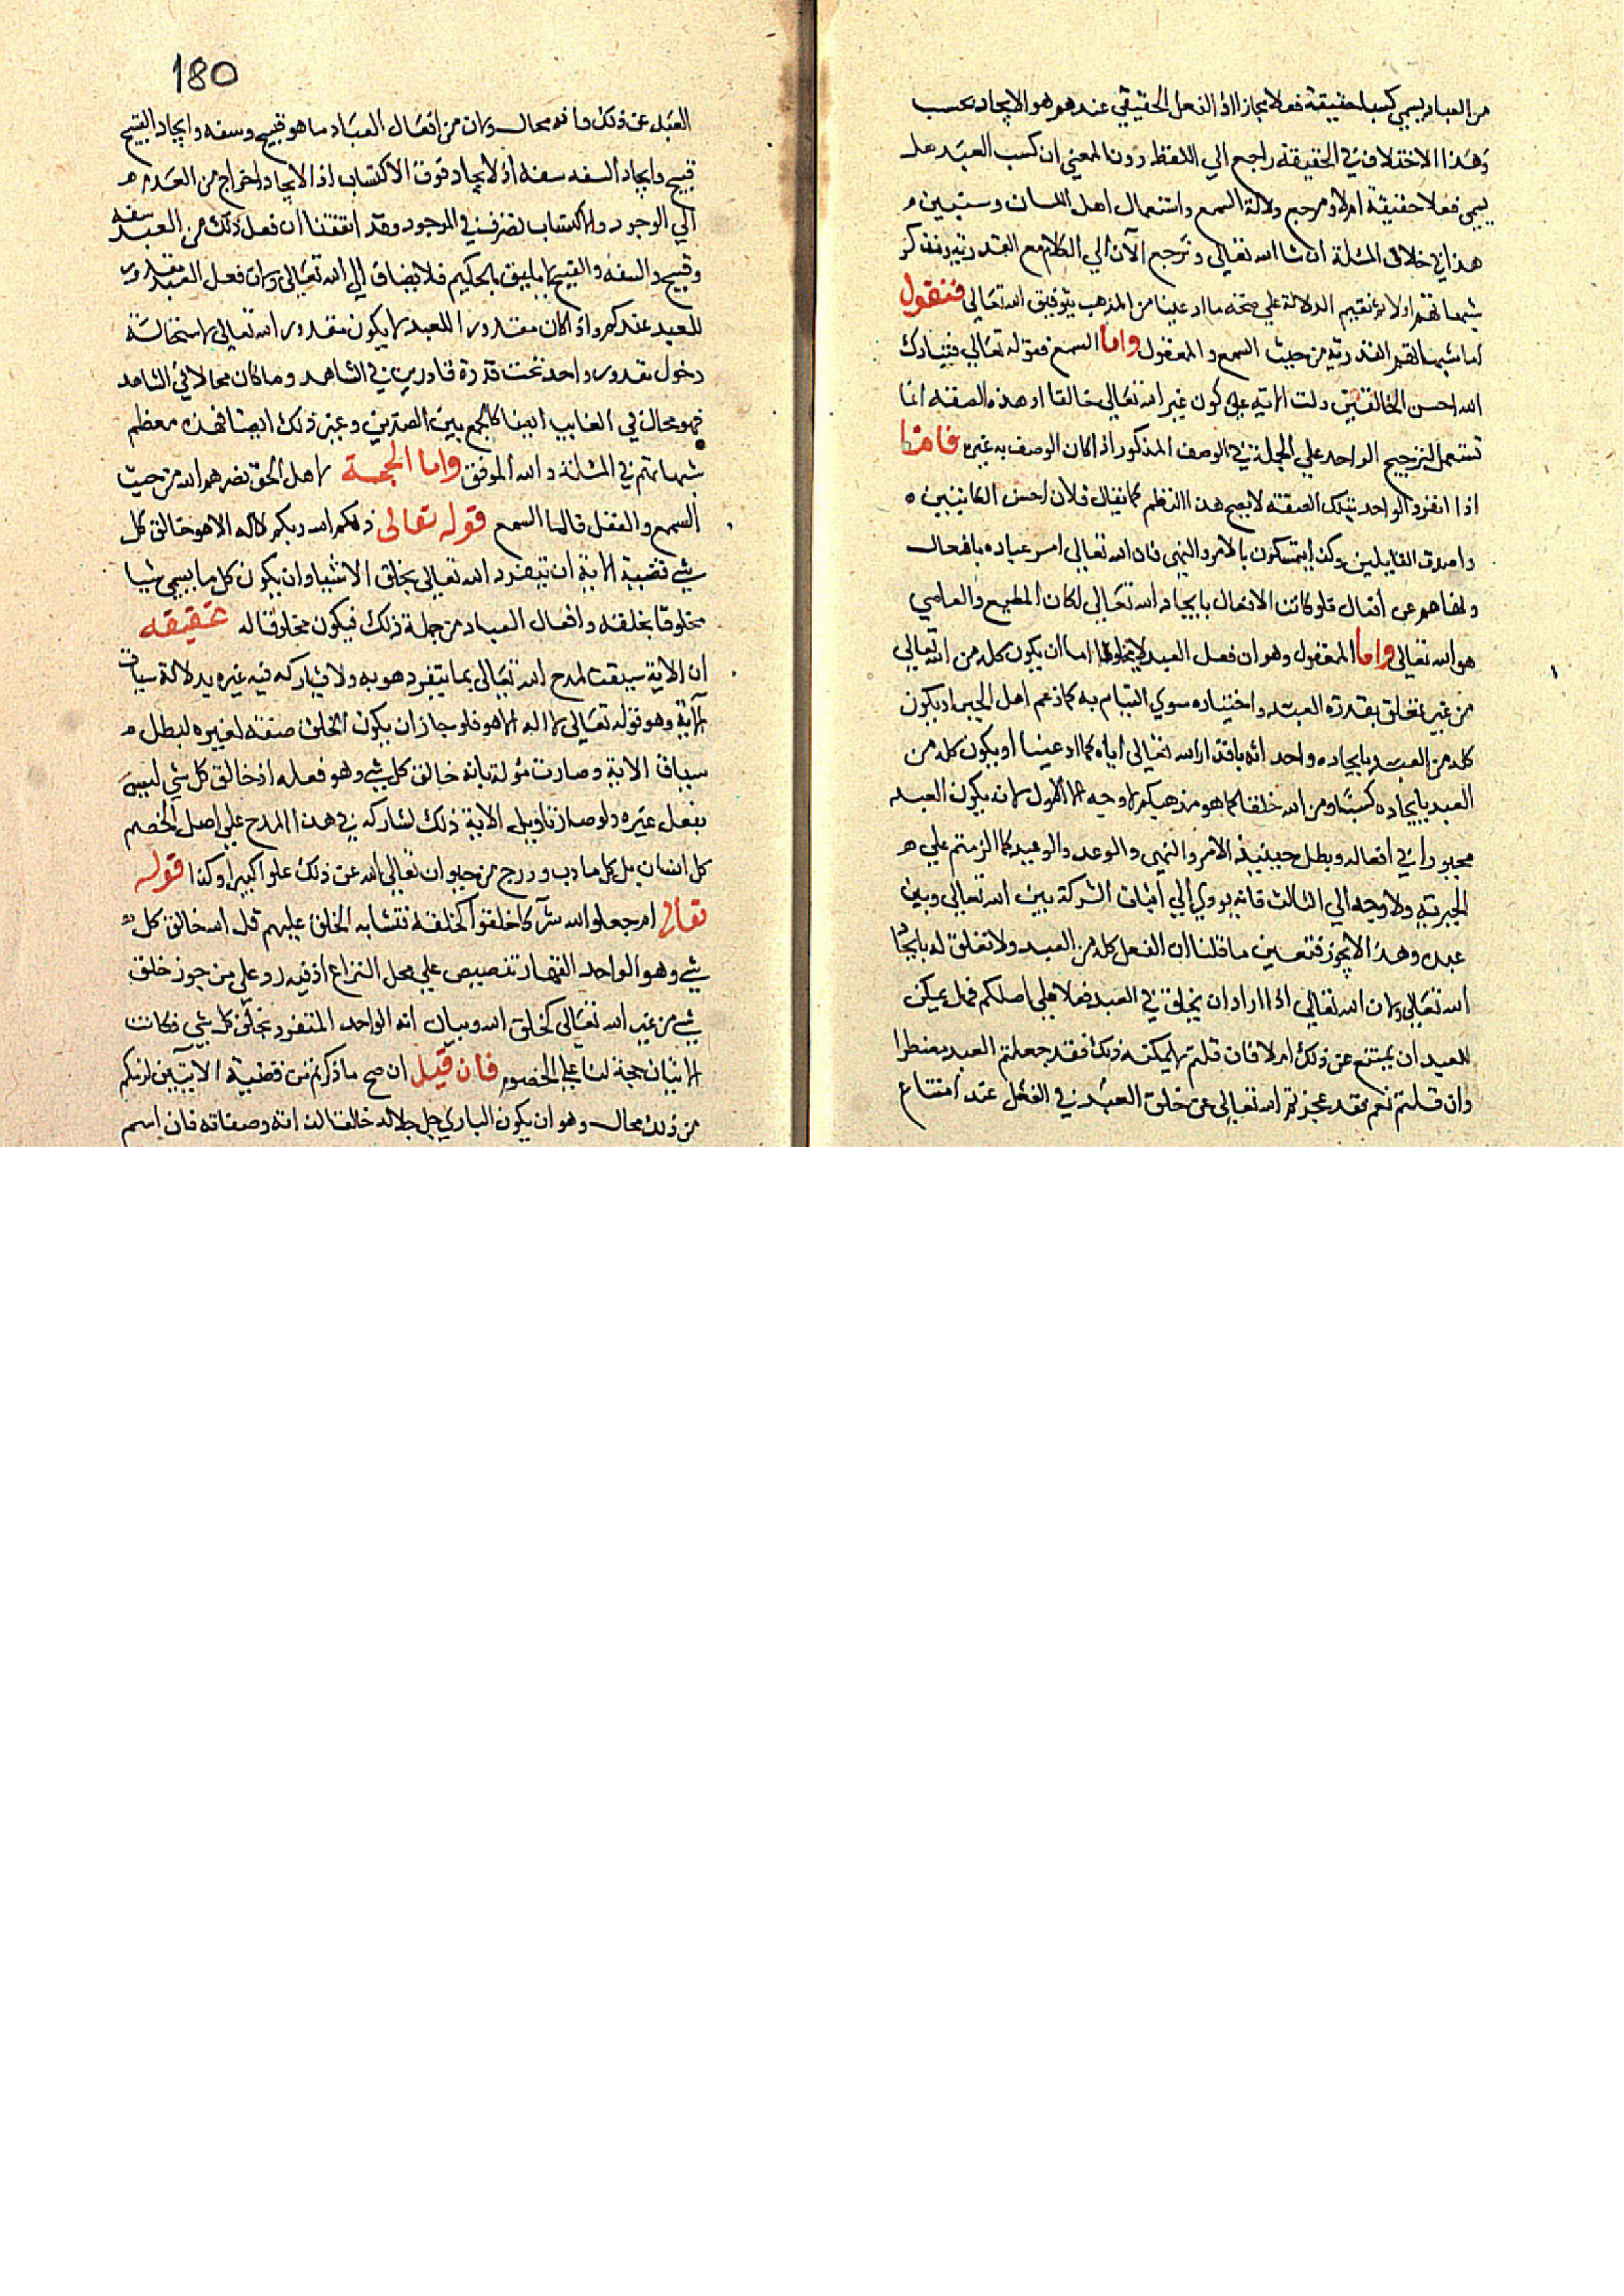 من العباد يسمي كسبا حقيقة فعلا مجازا اذ الفعل الحقيقي عندهم هو الايجاد بحسب
وهذا الاختلاف في الحقيقة راجع الي اللفظ دون المعني ان كسب العبد هل
يسمي فعلا حقيقة ام لا ومرجع دلالة السمع واستعمال اهل اللسان وسنبين
هذا في خلاف المسئلة ان شا الله تعالي ونرجع الآن الي الكلام مع القدرية ونذكر
شبهاتهم اولا ثم نقيم الدلالة علي صحة ما ادعينا من المذهب بتوفيق الله تعالي فنقول
اما شبهات القدرية من حيث السمع والمعقول واما السمع فقوله تعالي فتبارك
الله احسن الخالقين دلت الاية علي كون غير الله تعالي خالقا اذ هذه الصفة انما
تستعمل لترجيح الواحد علي الجملة في الوصف المذكور اذا كان الوصف به غيره فاما
اذا انفرد الواحد بتلك الصفة لا يصح هذا النظم كما يقال فلان احسن الكاتبين
واصدق القايلين وكذا يتمسكون بالامر والنهي فان الله تعالي امر عباده بافعال
ونهاهم عن افعال فلو كانت الافعال بايجاد الله تعالي لكان المطيع والعاصي
هو الله تعالي واما المعقول وهو ان فعل العبد لا يخلو اما ان يكون كله من الله تعالي
من غير تعلق بقدرة العبد واختياره سوي القيام به كما زعم اهل الجبر او يكون
كله من العبد بايجاده واحداثه باقدار الله تعالي اياه كما ادعينا او يكون كله من
العبد بايجاده كسبا ومن الله خلقا كما هو مذهبكم لا وجه الي الاول لانه يكون العبد
مجبورا في افعاله ويبطل حينيذ الامر والنهي والوعد والوعيد كما الزمتم علي
الجبرية ولا وجه الي الثالث فانه يودي الي اثبات الشركة بين الله تعالي وبين
عبده وهذا لا يجوز فتعين ما قلنا ان الفعل كله من العبد ولا تعلق له بايجاد
الله تعالي ولان الله تعالي اذا اراد ان يخلق في العبد فعلا علي اصلكم فهل يمكن
للعبد ان يمتنع عن ذلك ام لا فان قلتم لا يمكنه ذلك فقد جعلتم العبد مضطرا
وان قلتم نعم فقد عجزتم الله تعالي عن خلق العبد في الفعل عند امتناع
180
العبد عن ذلك وانه محال ولان من افعال العباد ما هو قبيح وسفه وايجاد القبيح
قبيح وايجاد السفه سفه اذ الايجاد فوق الاكتساب اذ الايجاد اخراج من العدم
الي الوجود والاكتساب تصرف في الموجود وقد اتفقنا ان فعل ذلك من العبد سفه
وقبيح والسفه والقبيح لا يليق بالحكيم فلا يضاف الي الله تعالي ولان فعل العبد مقدور
للعبد عندكم واذا كان مقدور اللعبد لا يكون مقدور الله تعالي لاستحالة
دخول مقدور واحد تحت قدرة قادرين في الشاهد وما كان محالا في الشاهد
فهو محال في الغايب ايضا كالجمع بين الضدين وغير ذلك ايضا فهذه معظم
شبهاتهم في المسئلة والله الموفق واما الحجة لاهل الحق نصرهم الله من حيث
السمع والعقل فاما السمع قوله تعالى ذلكم الله ربكم لا اله الا هو خالق كل
شي قضية الاية ان يتفرد الله تعالي بخلق الاشيا وان يكون كل ما يسمي شيا
مخلوقا بخلقه وافعال العباد من جملة ذلك فيكون مخلوقا له تحقيقه
ان الاية سيقت لمدح الله تعالي بما يتفرد هو به ولا يشاركه فيه غيره بدلالة سياق
الاية وهو قوله تعالي لا اله الا هو فلو جاز ان يكون الخلق صفة لغيره لبطل
سياق الاية وصارت مؤلة بانه خالق كل شي وهو فعله اذ خالق كل شي ليس
بفعل غيره ولو صار تاويل الاية ذلك لشاركه في هذا المدح علي اصل الخصم
كل انسان بل كل ما دب ودرج من حيوان تعالي الله عن ذلك علوا كبيرا وكذا قوله
تعالى ام جعلوا لله شركا خلقوا كخلقه فتشابه الخلق عليهم قل الله خالق كل
شي وهو الواحد القهار تنصيص علي محل النزاع اذ فيه رد علي من جوز خلق
شي من غير الله تعالي كخلق الله وبيان انه الواحد المتفرد بخلق كل شي فكانت
الايتان حجة لنا علي الخصوم فان قيل ان صح ما ذكرتم من قضية الايتين لزمكم
من ذلك محال وهو ان يكون الباري جل جلاله خالقا لذاته وصفاته فان اسم